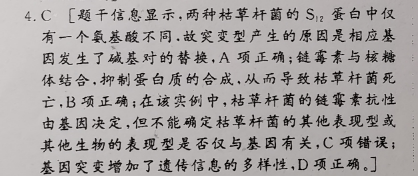 4.C [题干信息显示,两种枯草杆菌的S₁₂蛋白中仅
有一个氨基酸不同,故突变型产生的原因是相应基
因发生了碱基对的替换,A项正确;链霉素与核糖
体结合,抑制蛋白质的合成,从而导致枯草杆菌死
亡,B项正确;在该实例中,枯草杆菌的链霉素抗性
由基因决定,但不能确定枯草杆菌的其他表现型或
其他生物的表现型是否仅与基因有关,C项错误;
基因突变增加了遗传信息的多样性,D项正确。]